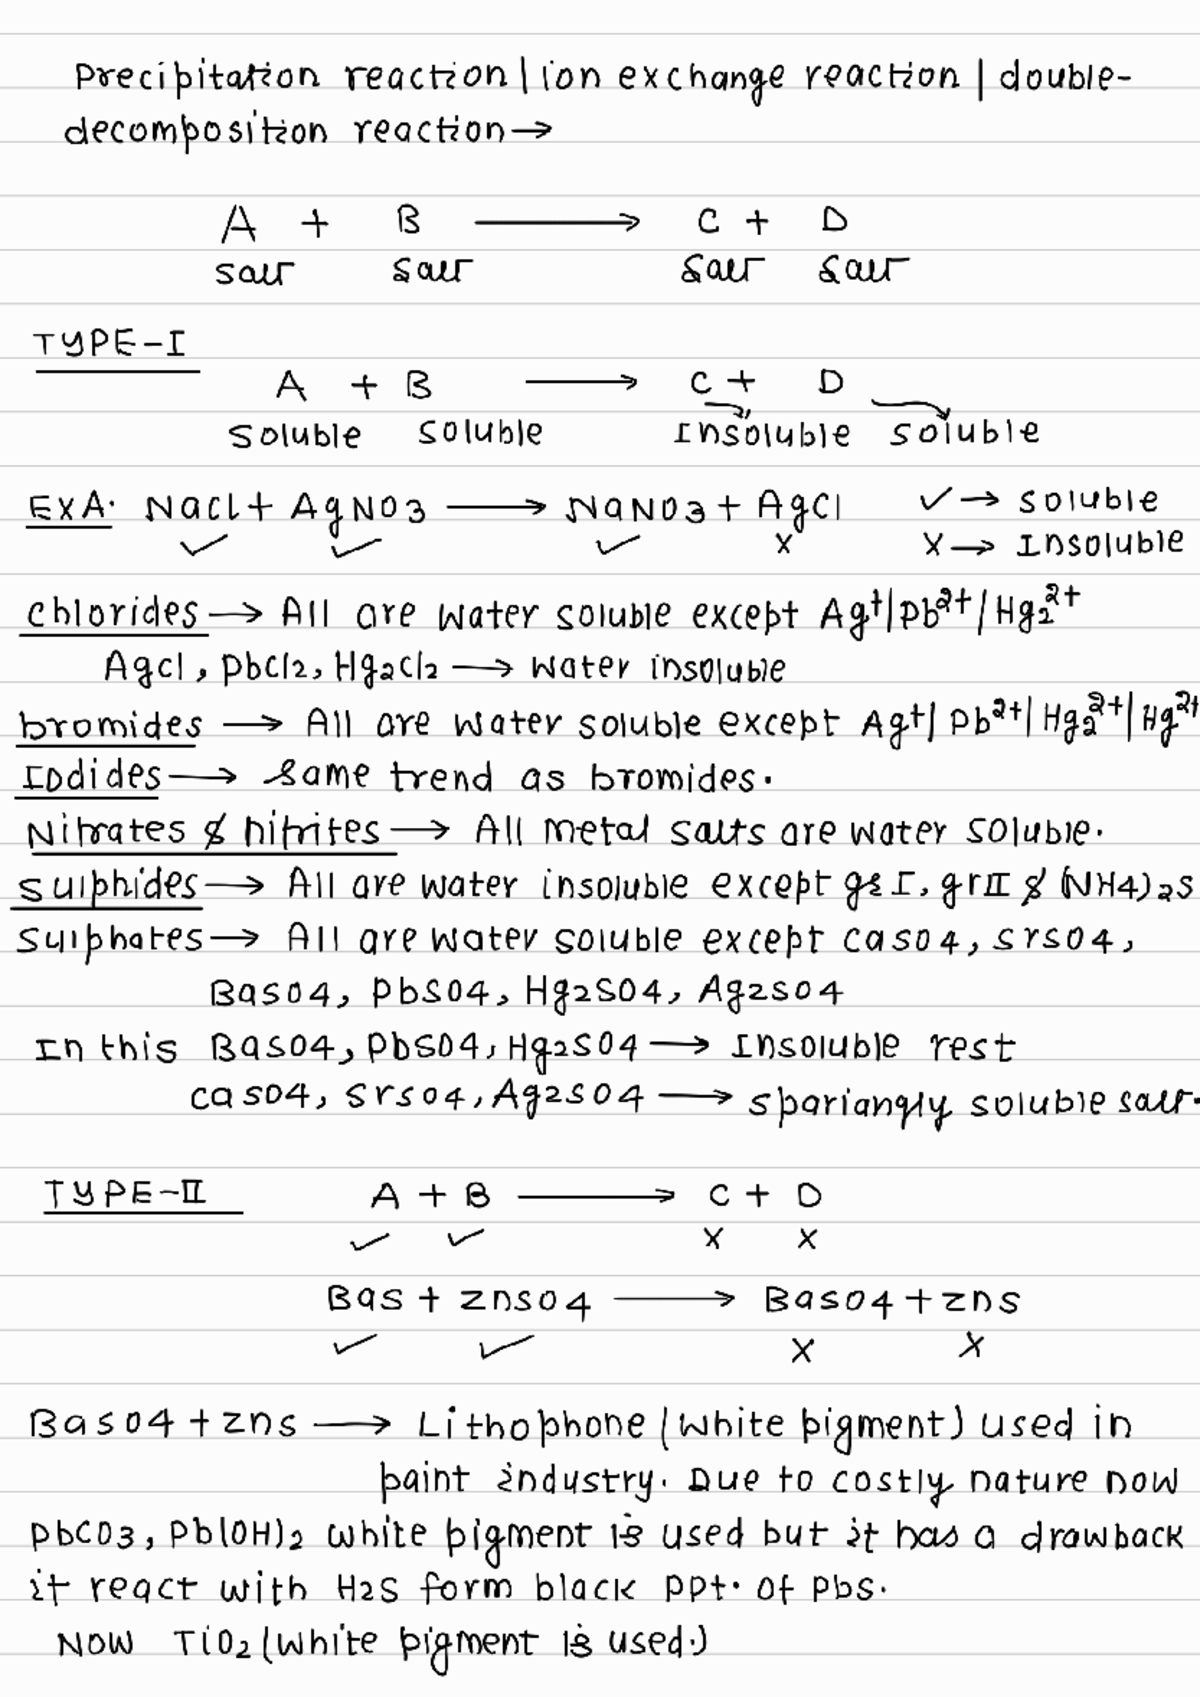 Precipitation reaction | ion exchange reaction | double-
decomposition reaction →
A + B → C + D
Salt Salt Salt Salt
TYPE-I
A + B → C + D
Soluble Soluble Insoluble Soluble
EXA: NaCl + AgNO3 → NaNO3 + AgCl ✓ → Soluble
✓ ✓ ✓ X X → Insoluble
Chlorides → All are water soluble except Ag⁺|Pb²⁺|Hg₂²⁺
AgCl, PbCl2, Hg2Cl2 → water insoluble
bromides → All are water soluble except Ag⁺| Pb²⁺| Hg₂²⁺|Hg²⁺
Iodides → Same trend as bromides.
Nitrates & nitrites → All metal salts are water soluble.
Sulphides → All are water insoluble except gr I, gr II & (NH4)2S
Sulphates → All are water soluble except CaSO4, SrSO4,
BaSO4, PbSO4, Hg2SO4, Ag2SO4
In this BaSO4, PbSO4, Hg2SO4 → Insoluble rest
CaSO4, SrSO4, Ag2SO4 → spariangly soluble salt.
TYPE-II A + B → C + D
✓ ✓ X X
BaS + ZnSO4 → BaSO4 + ZnS
✓ ✓ X X
BaSO4 + ZnS → Lithophone (white pigment) used in
paint industry. Due to costly nature now
PbCO3, Pb(OH)2 white pigment is used but it has a drawback
it react with H2S form black ppt. of PbS.
Now TiO2 (white pigment is used.)